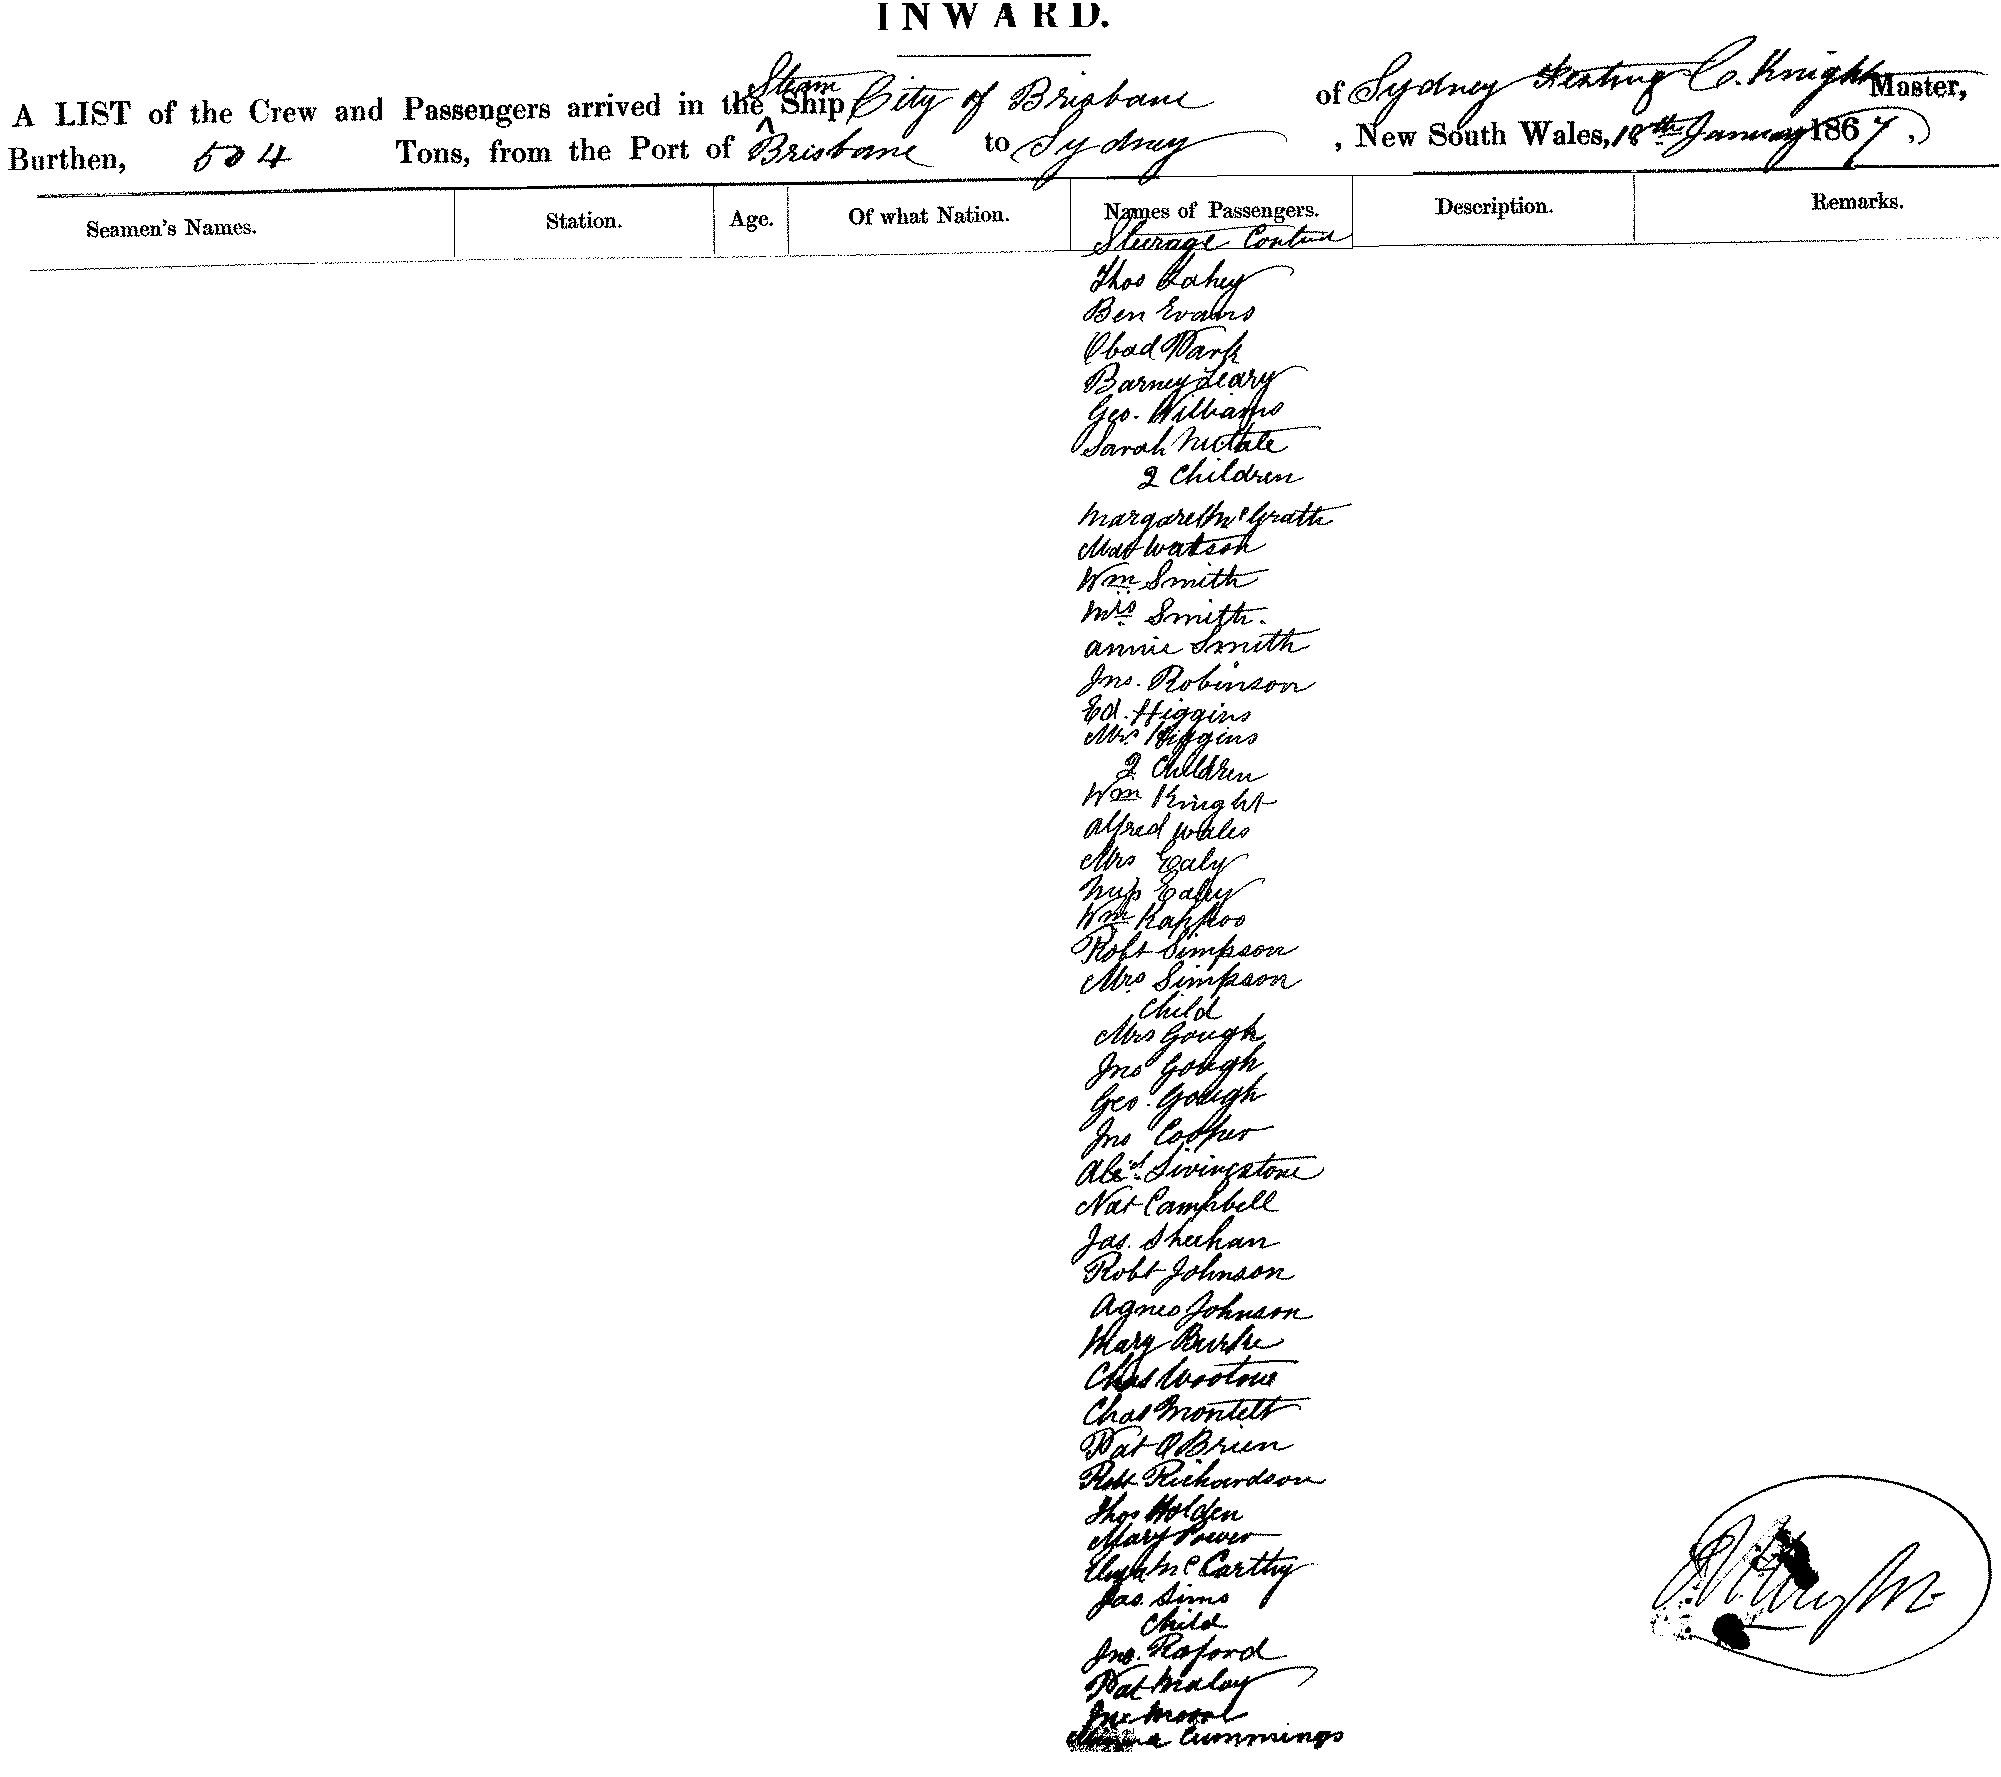 INWARD.
A LIST of the Crew and Passengers arrived in the Steam Ship City of Brisbane of Sydney C. Knight Master,
Burthen, 504 Tons, from the Port of Brisbane to Sydney , New South Wales, 18th January 1867.
Seamen's Names. Station. Age. Of what Nation. Names of Passengers. Description. Remarks.
Steerage Contind
Thos Lahey
Ben Evans
Obad Park
Barney Leary
Geo. Williams
Sarah
2 Children
Margaret McGrath
Watson
Wm Smith
Mrs Smith.
Annie Smith
Jno. Robinson
Ed. Higgins
Mrs Higgins
2 Children
Wm Knight
Alfred Wales
Mrs Ealy
Ealey
Wm
Robt Simpson
Mrs Simpson
Child
Mrs Gough
Jno Gough
Geo. Gough
Jno Cooper
Livingstone
Nat Campbell
Jas. Sheehan
Robt Johnson
Agnes Johnson
Mary Burke
Chas Wootone
Chas Montelt
Pat OBrien
Robt Richardson
Thos Holden
Mary Power
McCarthy
Jas. Sims
Child
Jno. Raford
Pat Maloy
Jno
Cummings
Knight